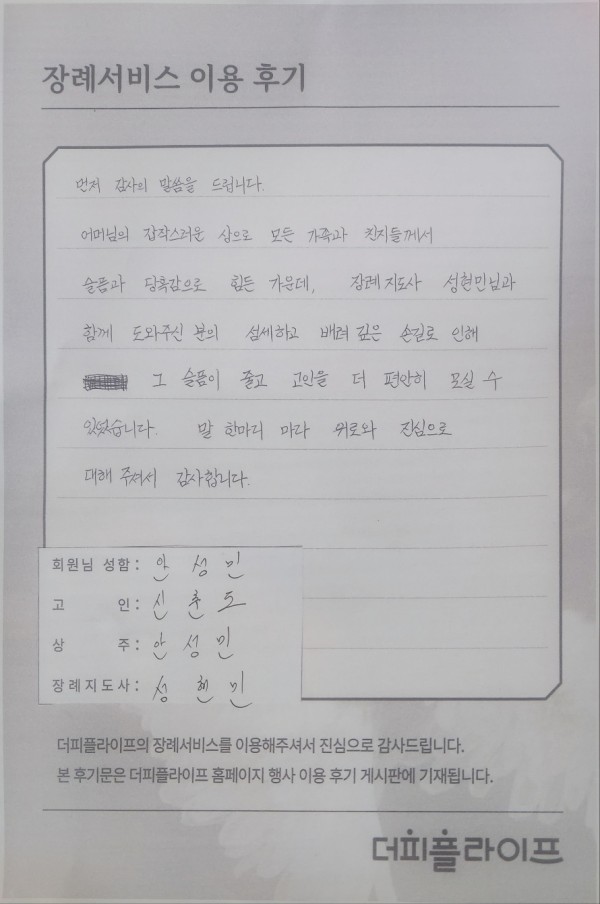 장례서비스 이용 후기
먼저 감사의 말씀을 드립니다.
어머님의 갑작스러운 상으로 모든 가족과 친지들께서
슬픔과 당혹감으로 힘든 가운데, 장례지도사 성현민님과
함께 도와주신 분의 섬세하고 배려 깊은 손길로 인해
그 슬픔이 줄고 고인을 더 편안히 모실 수
있었습니다. 말 한마리 마라 위로와 진심으로
대해 주셔서 감사합니다.
회원님 성함: 안성민
고 인: 신춘도
상 주: 안성민
장례지도사: 성현민
더피플라이프의 장례서비스를 이용해주셔서 진심으로 감사드립니다.
본 후기문은 더피플라이프 홈페이지 행사 이용 후기 게시판에 기재됩니다.
더피플라이프